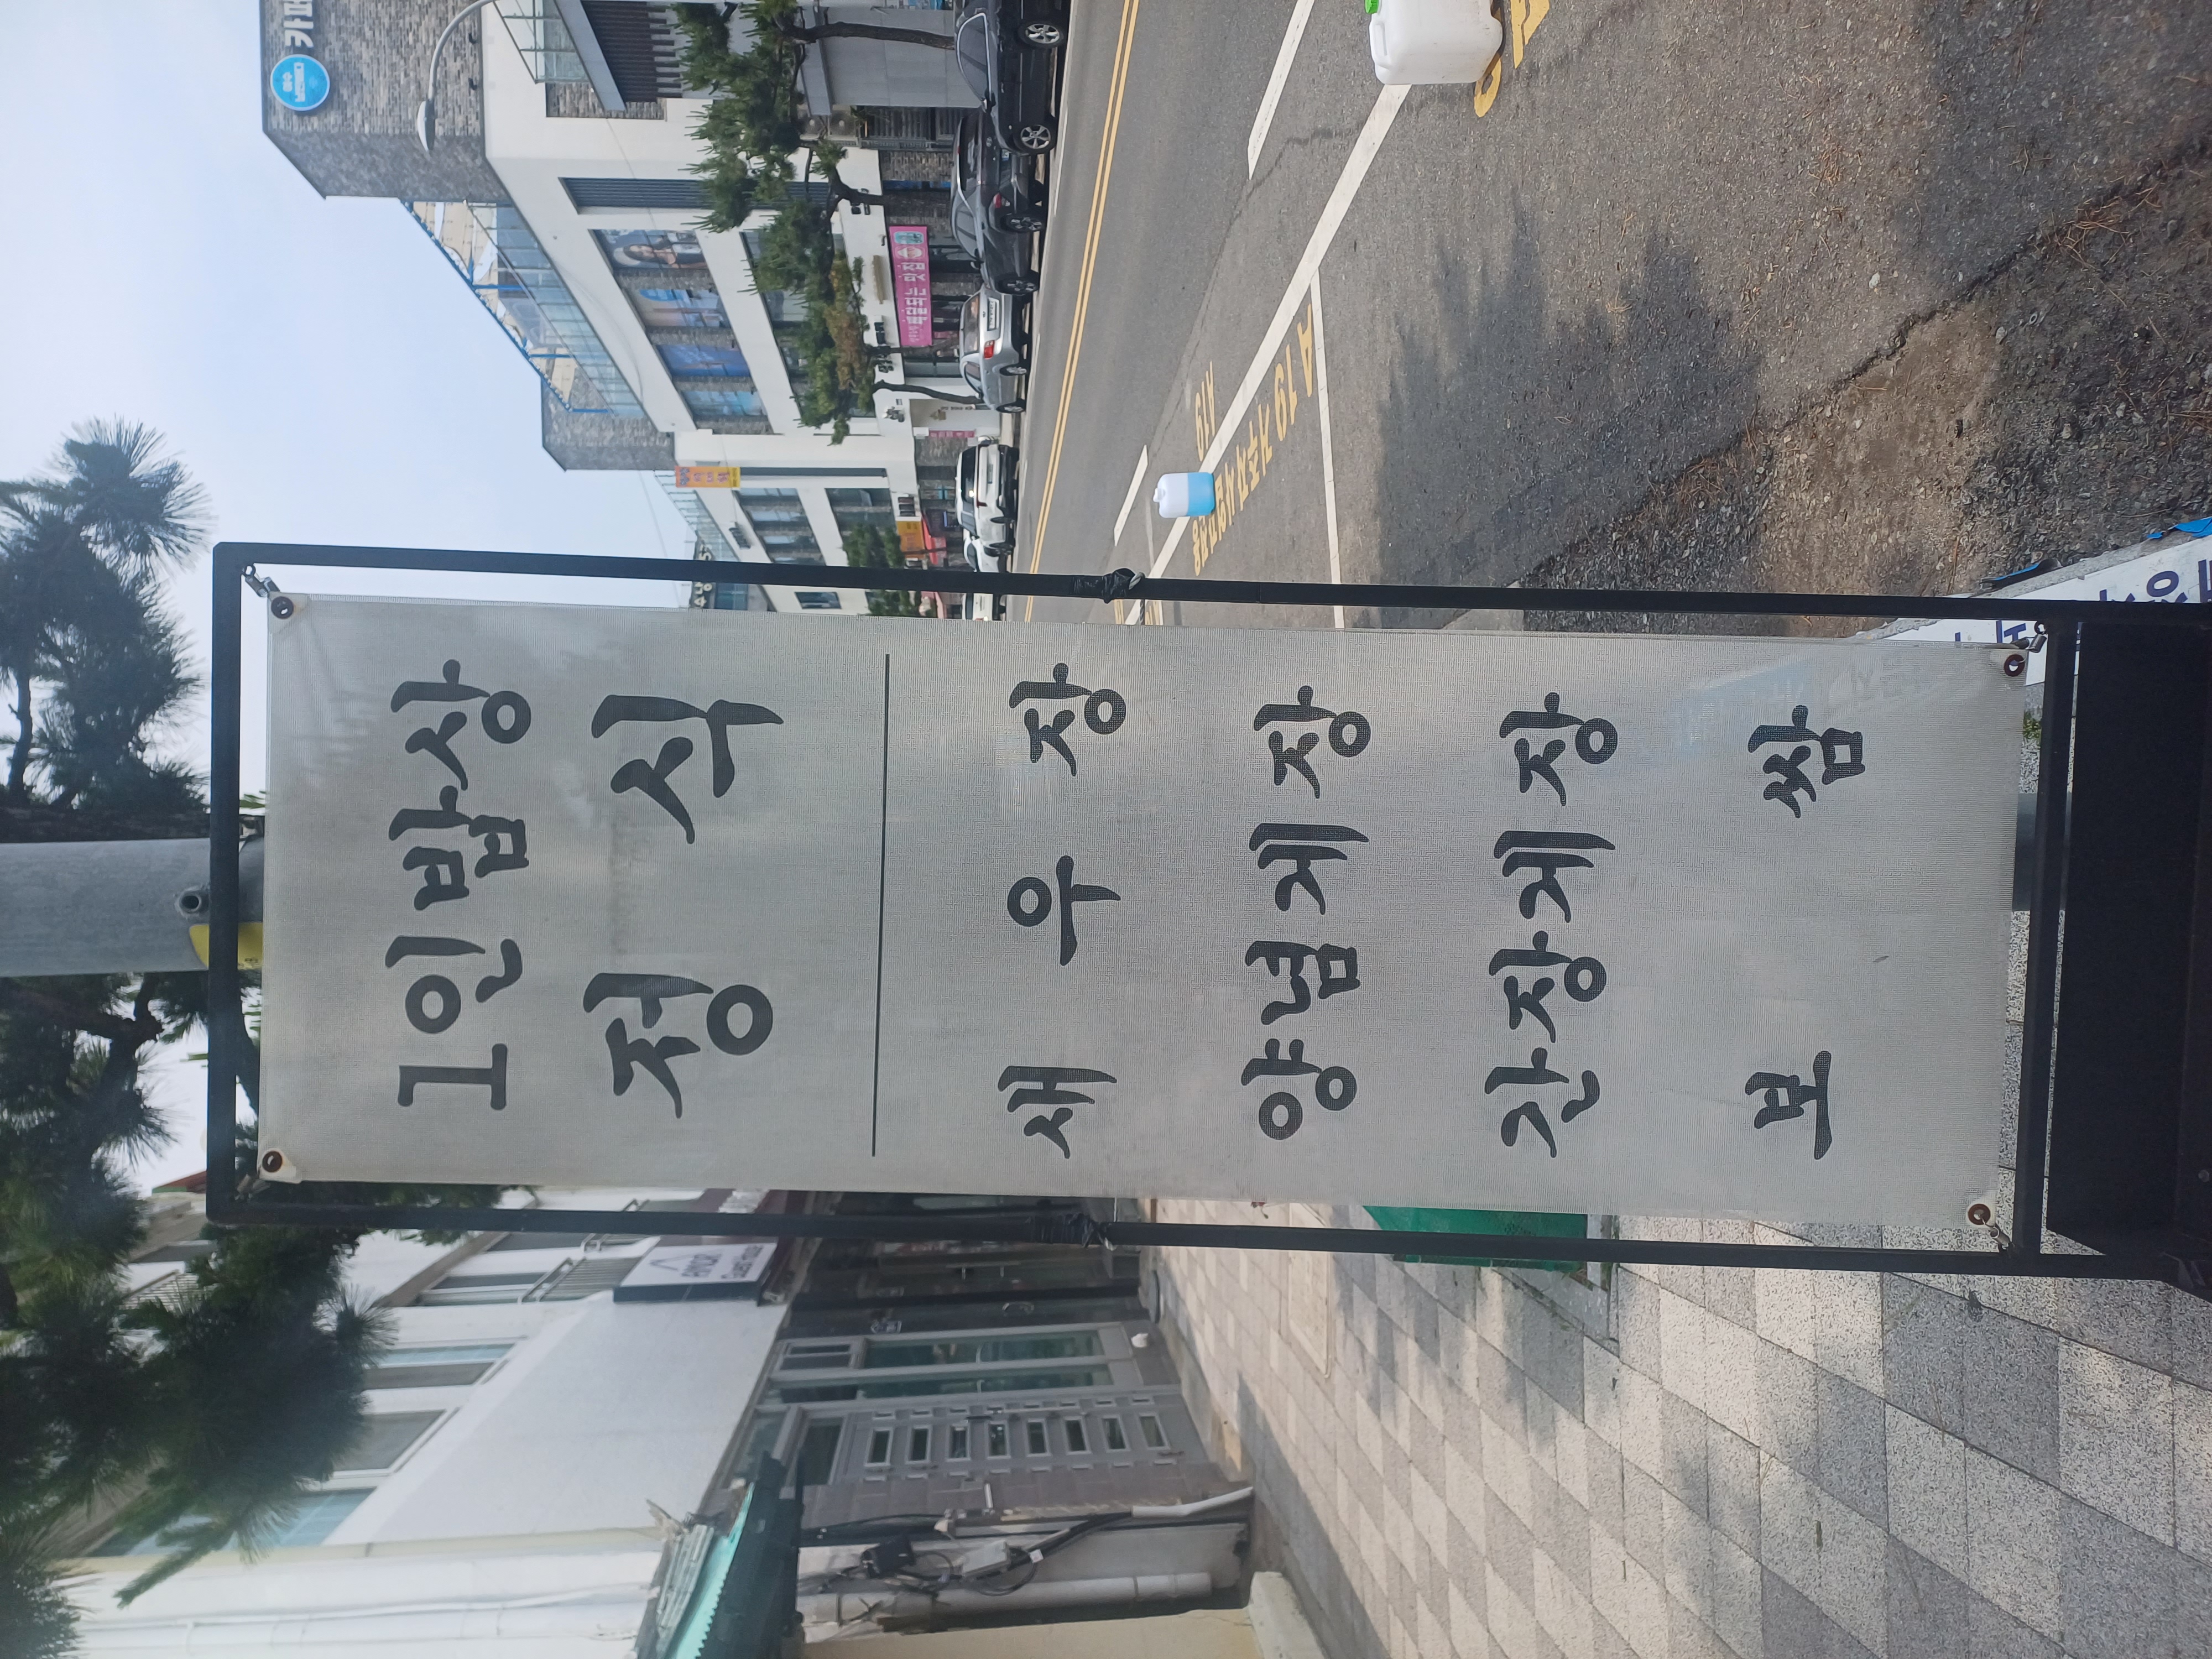 1인밥상
정식
새우장
양념게장
간장게장
보쌈
카페
A19
A19 거주자우선주차